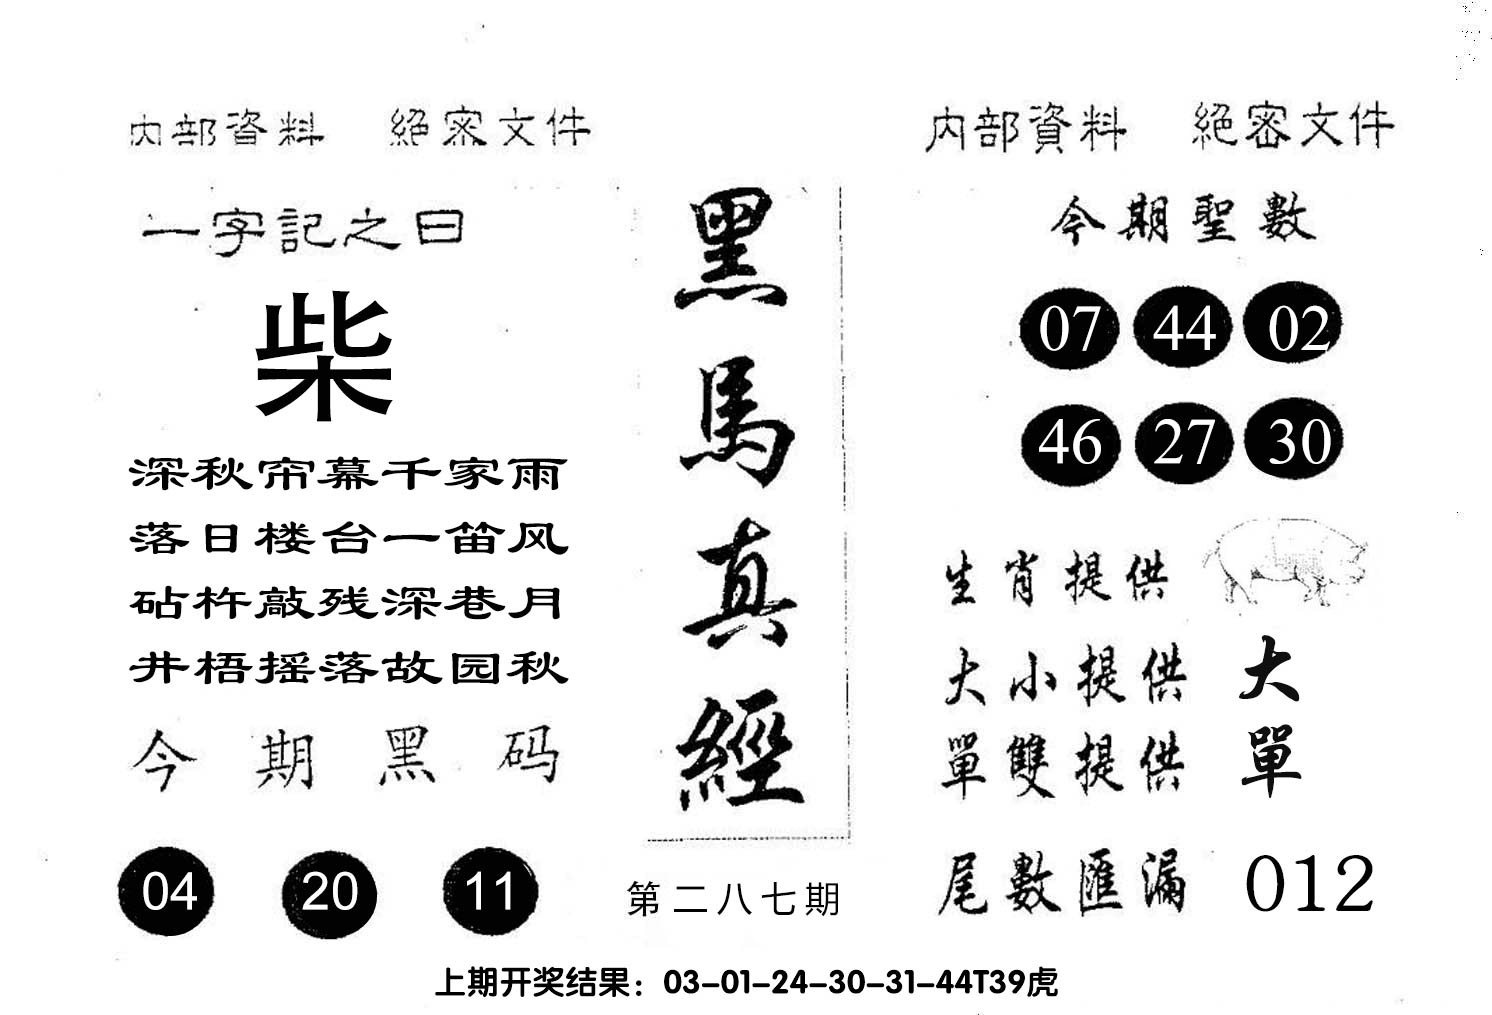 内部資料 絕密文件
一字記之曰
柴
深秋帘幕千家雨
落日楼台一笛风
砧杵敲残深巷月
井梧摇落故园秋
今期黑码
04 20 11
黑馬真經
第二八七期
内部資料 絕密文件
今期聖數
07 44 02
46 27 30
生肖提供
大小提供 大
單雙提供 單
尾數匯漏 012
上期开奖结果：03-01-24-30-31-44T39虎